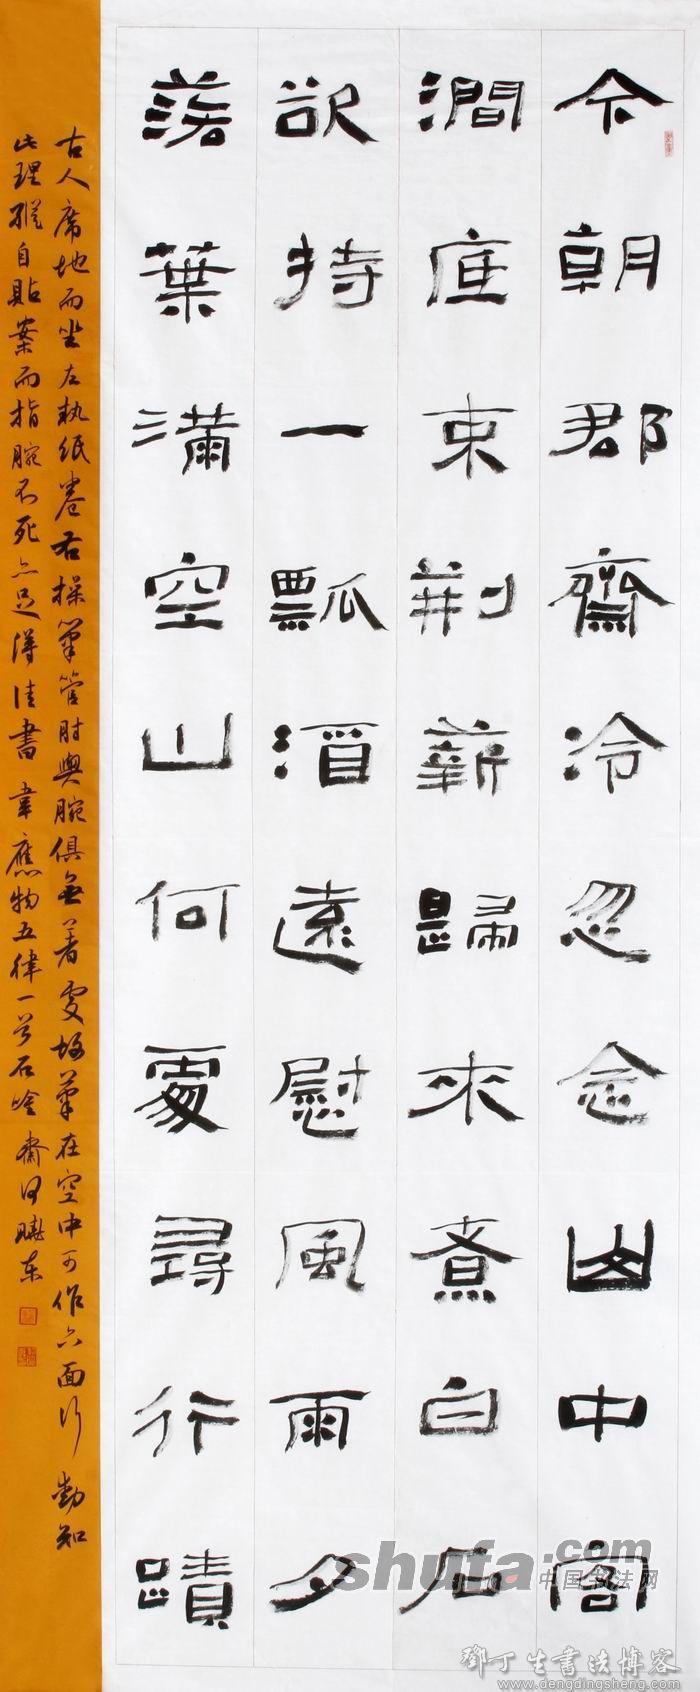 今朝郡齋冷忽念山中客
澗底束荆薪歸來煮白石
欲持一瓢酒遠慰風雨夕
落葉滿空山何處尋行蹟
古人席地而坐左執紙卷右操筆管肘與腕俱無著處故筆在空中可作六面行知
此理縱自貼案而指腕不死亦足得佳書 韋應物五律一首石唫齋曉東
shufa.com
中国书法网
鄧丁生書法博客
www.dengdingsheng.com